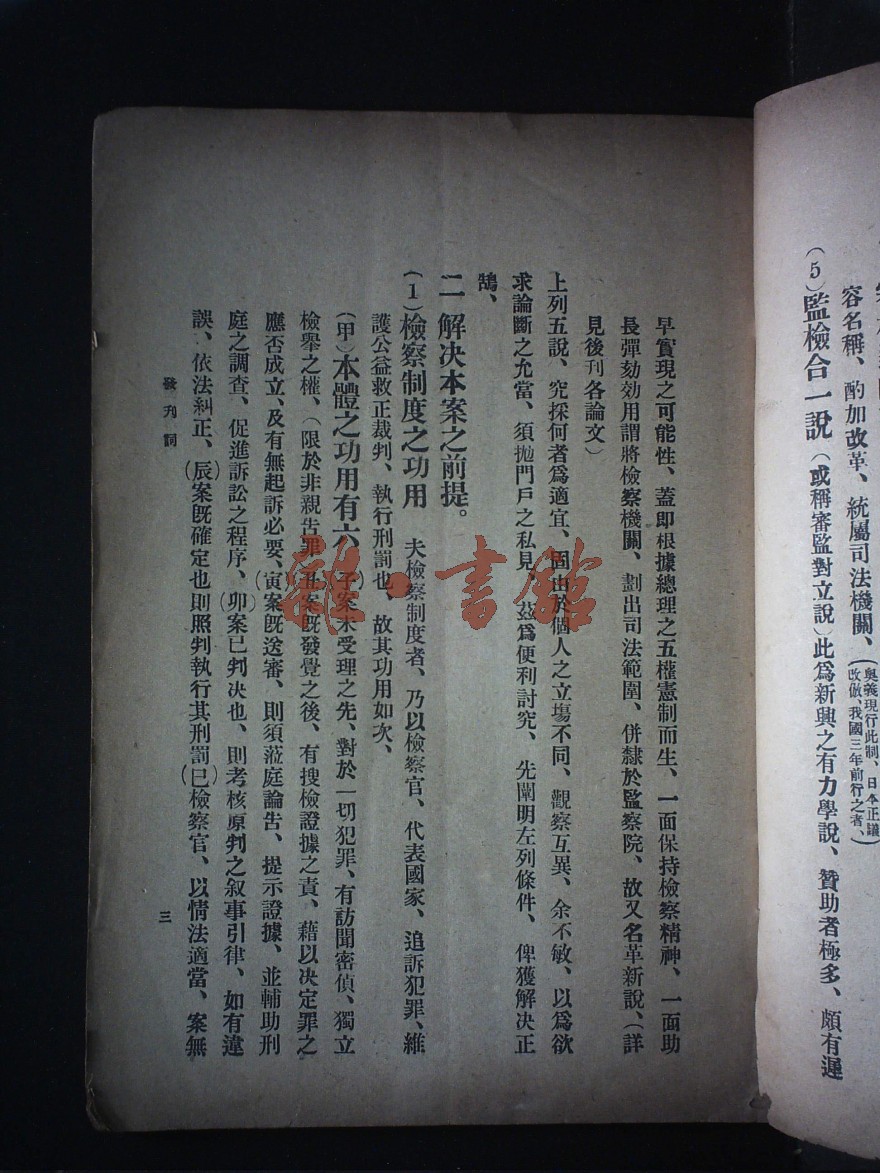 容名稱、酌加改革、統屬司法機關、(奧義現行此制、日本正議
改倣、我國三年前行之者、)
(5)監檢合一說(或稱審監對立說)此爲新興之有力學說、贊助者極多、頗有遲
早實現之可能性、蓋即根據總理之五權憲制而生、一面保持檢察精神、一面助
長彈劾効用謂將檢察機關、劃出司法範圍、併隸於監察院、故又名革新說、(詳
見後刊各論文)
上列五說、究採何者爲適宜、固由於個人之立塲不同、觀察互異、余不敏、以爲欲
求論斷之允當、須拋門戶之私見、茲爲便利討究、先闡明左列條件、俾獲解决正
鵠、
二 解决本案之前提。
(1)檢察制度之功用 夫檢察制度者、乃以檢察官、代表國家、追訴犯罪、維
護公益救正裁判、執行刑罰也、故其功用如次、
(甲)本體之功用有六(子)案未受理之先、對於一切犯罪、有訪聞密偵、獨立
檢舉之權、(限於非親告罪)(丑)案旣發覺之後、有搜檢證據之責、藉以决定罪之
應否成立、及有無起訴必要、(寅)案旣送審、則須蒞庭論告、提示證據、並輔助刑
庭之調查、促進訴訟之程序、(卯)案已判决也、則考核原判之叙事引律、如有違
誤、依法糾正、(辰)案旣確定也則照判執行其刑罰(巳)檢察官、以情法適當、案無
發刊詞
三
雜·書館